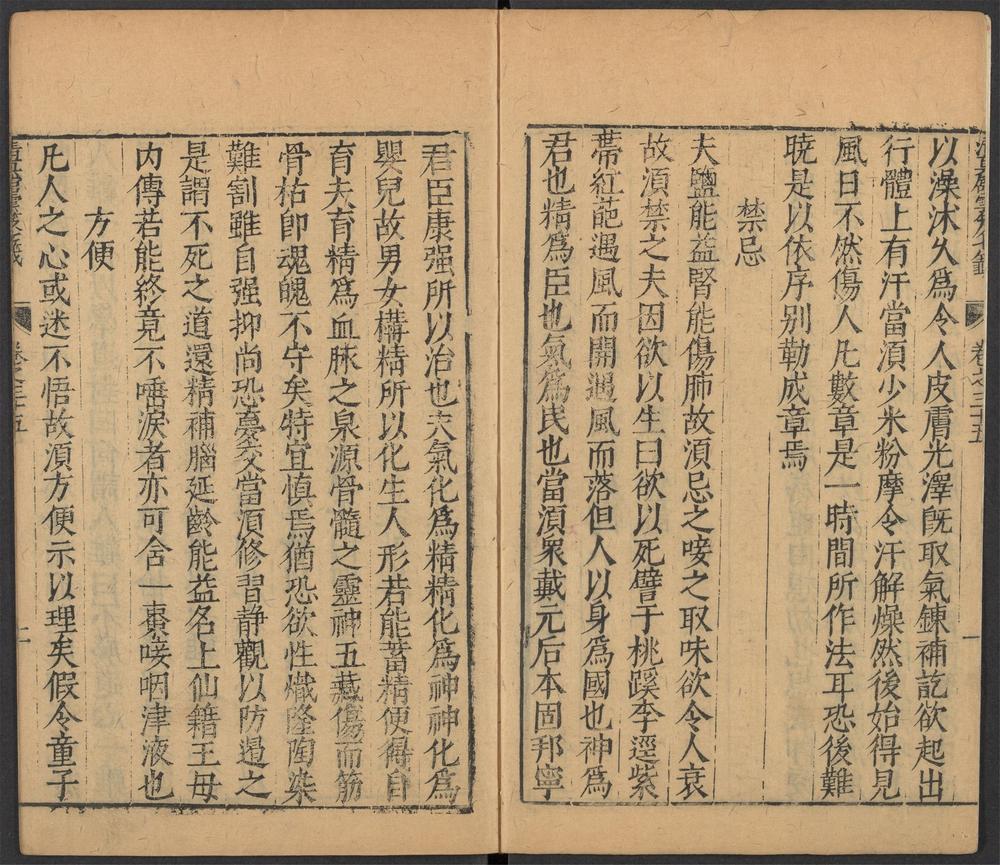 以澡沐久爲令人皮膚光澤旣取氣鍊補訖欲起出
行體上有汗當須少米粉摩令汗解燥然後始得見
風日不然傷人凡數章是一時間所作法耳恐後難
曉是以依序别勒成章焉
禁忌
夫鹽能益腎能傷肺故須忌之唼之取味欲令人衰
故須禁之夫因欲以生曰欲以死譬于桃蹊李逕紫
蔕紅葩遇風而開遇風而落但人以身爲國也神爲
君也精爲臣也氣爲民也當須衆戴元后本固邦寧
卷之三十五
一
君臣康强所以治也夫氣化爲精精化爲神神化爲
嬰兒故男女構精所以化生人形若能蓄精便得自
育夫育精爲血脉之泉源骨髓之靈神五藏傷而筋
骨枯卽魂魄不守矣特宜慎焉猶恐欲性熾隆陶染
難割雖自强抑尚恐蔓交當須修習静觀以防遏之
是謂不死之道還精補腦延齡能益名上仙籍王母
内傳若能終竟不唾涙者亦可含一棗唼咽津液也
方便
凡人之心或迷不悟故須方便示以理矣假令童子
卷之三十五
二